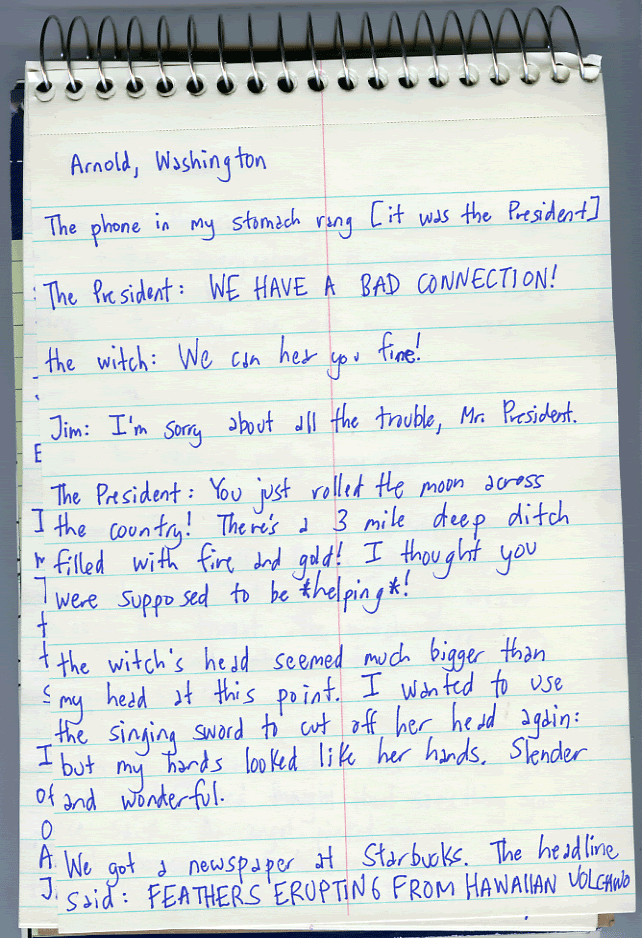 Arnold, Washington
The phone in my stomach rang [it was the President]
The President: WE HAVE A BAD CONNECTION!
the witch: We can hear you fine!
Jim: I'm sorry about all the trouble, Mr. President.
The President: You just rolled the moon across
the country! There's a 3 mile deep ditch
filled with fire and gold! I thought you
were supposed to be *helping*!
the witch's head seemed much bigger than
my head at this point. I wanted to use
the singing sword to cut off her head again:
but my hands looked like her hands. Slender
and wonderful.
We got a newspaper at Starbucks. The headline
said: FEATHERS ERUPTING FROM HAWAIIAN VOLCANO